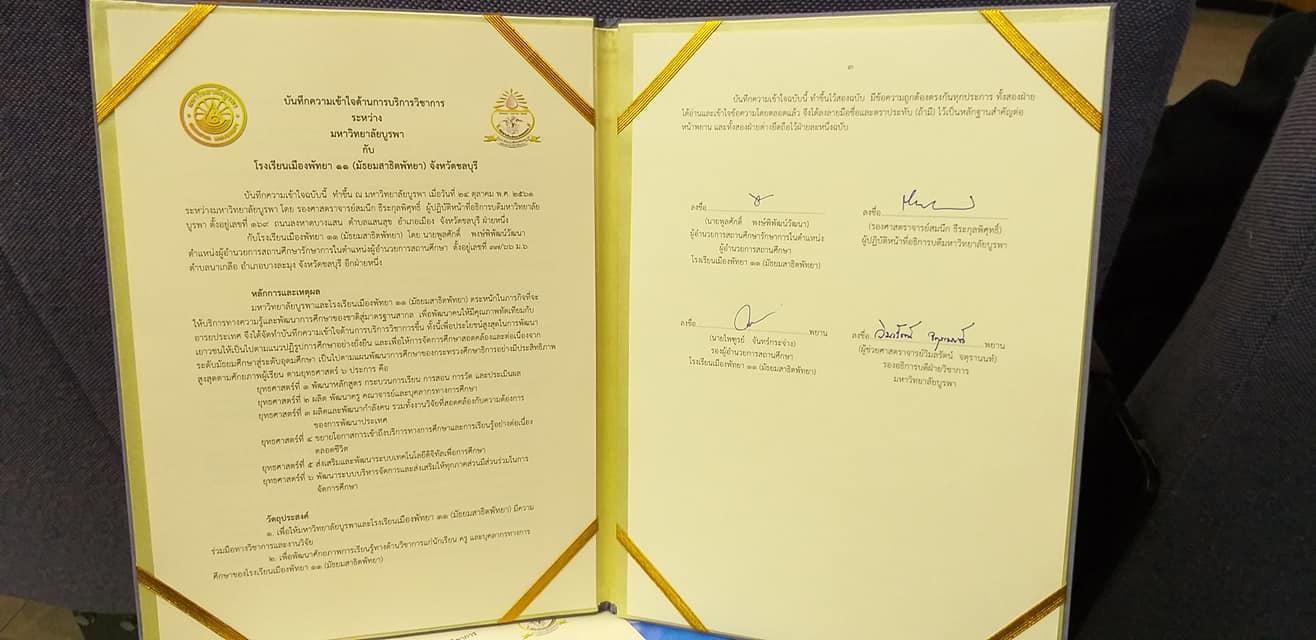 บันทึกความเข้าใจด้านการบริการวิชาการ
ระหว่าง
มหาวิทยาลัยบูรพา
กับ
โรงเรียนเมืองพัทยา ๑๑ (มัธยมสาธิตพัทยา) จังหวัดชลบุรี
บันทึกความเข้าใจฉบับนี้ ทำขึ้น ณ มหาวิทยาลัยบูรพา เมื่อวันที่ ๒๔ ตุลาคม พ.ศ. ๒๕๖๑
ระหว่างมหาวิทยาลัยบูรพา โดย รองศาสตราจารย์สมนึก ธีระกุลพิศุทธิ์ ผู้ปฏิบัติหน้าที่อธิการบดีมหาวิทยาลัย
บูรพา ตั้งอยู่เลขที่ ๑๖๙ ถนนลงหาดบางแสน ตำบลแสนสุข อำเภอเมือง จังหวัดชลบุรี ฝ่ายหนึ่ง
กับโรงเรียนเมืองพัทยา ๑๑ (มัธยมสาธิตพัทยา) โดย นายพูลศักดิ์ พงษ์พิพัฒน์วัฒนา
ตำแหน่งผู้อำนวยการสถานศึกษารักษาการในตำแหน่งผู้อำนวยการสถานศึกษา ตั้งอยู่เลขที่ ๓๗/๖๖ ม.๖
ตำบลนาเกลือ อำเภอบางละมุง จังหวัดชลบุรี อีกฝ่ายหนึ่ง
หลักการและเหตุผล
มหาวิทยาลัยบูรพาและโรงเรียนเมืองพัทยา ๑๑ (มัธยมสาธิตพัทยา) ตระหนักในภารกิจที่จะ
ให้บริการทางความรู้และพัฒนาการศึกษาของชาติสู่มาตรฐานสากล เพื่อพัฒนาคนให้มีคุณภาพทัดเทียมกับ
อารยประเทศ จึงได้จัดทำบันทึกความเข้าใจด้านการบริการวิชาการขึ้น ทั้งนี้เพื่อประโยชน์สูงสุดในการพัฒนา
เยาวชนให้เป็นไปตามแนวปฏิรูปการศึกษาอย่างยั่งยืน และเพื่อให้การจัดการศึกษาสอดคล้องและต่อเนื่องจาก
ระดับมัธยมศึกษาสู่ระดับอุดมศึกษา เป็นไปตามแผนพัฒนาการศึกษาของกระทรวงศึกษาธิการอย่างมีประสิทธิภาพ
สูงสุดตามศักยภาพผู้เรียน ตามยุทธศาสตร์ ๖ ประการ คือ
ยุทธศาสตร์ที่ ๑ พัฒนาหลักสูตร กระบวนการเรียน การสอน การวัด และประเมินผล
ยุทธศาสตร์ที่ ๒ ผลิต พัฒนาครู คณาจารย์และบุคลากรทางการศึกษา
ยุทธศาสตร์ที่ ๓ ผลิตและพัฒนากำลังคน รวมทั้งงานวิจัยที่สอดคล้องกับความต้องการ
ของการพัฒนาประเทศ
ยุทธศาสตร์ที่ ๔ ขยายโอกาสการเข้าถึงบริการทางการศึกษาและการเรียนรู้อย่างต่อเนื่อง
ตลอดชีวิต
ยุทธศาสตร์ที่ ๕ ส่งเสริมและพัฒนาระบบเทคโนโลยีดิจิทัลเพื่อการศึกษา
ยุทธศาสตร์ที่ ๖ พัฒนาระบบบริหารจัดการและส่งเสริมให้ทุกภาคส่วนมีส่วนร่วมในการ
จัดการศึกษา
วัตถุประสงค์
๑. เพื่อให้มหาวิทยาลัยบูรพาและโรงเรียนเมืองพัทยา ๑๑ (มัธยมสาธิตพัทยา) มีความ
ร่วมมือทางวิชาการและงานวิจัย
๒. เพื่อพัฒนาศักยภาพการเรียนรู้ทางด้านวิชาการแก่นักเรียน ครู และบุคลากรทางการ
ศึกษาของโรงเรียนเมืองพัทยา ๑๑ (มัธยมสาธิตพัทยา)
๓
บันทึกความเข้าใจฉบับนี้ ทำขึ้นไว้สองฉบับ มีข้อความถูกต้องตรงกันทุกประการ ทั้งสองฝ่าย
ได้อ่านและเข้าใจข้อความโดยตลอดแล้ว จึงได้ลงลายมือชื่อและตราประทับ (ถ้ามี) ไว้เป็นหลักฐานสำคัญต่อ
หน้าพยาน และทั้งสองฝ่ายต่างยึดถือไว้ฝ่ายละหนึ่งฉบับ
ลงชื่อ
(นายพูลศักดิ์ พงษ์พิพัฒน์วัฒนา)
ผู้อำนวยการสถานศึกษารักษาการในตำแหน่ง
ผู้อำนวยการสถานศึกษา
โรงเรียนเมืองพัทยา ๑๑ (มัธยมสาธิตพัทยา)
ลงชื่อ
(รองศาสตราจารย์สมนึก ธีระกุลพิศุทธิ์)
ผู้ปฏิบัติหน้าที่อธิการบดีมหาวิทยาลัยบูรพา
ลงชื่อ พยาน
(นายไพฑูรย์ จันทร์กระจ่าง)
รองผู้อำนวยการสถานศึกษา
โรงเรียนเมืองพัทยา ๑๑ (มัธยมสาธิตพัทยา)
ลงชื่อ วิมลรัตน์ จตุรานนท์ พยาน
(ผู้ช่วยศาสตราจารย์วิมลรัตน์ จตุรานนท์)
รองอธิการบดีฝ่ายวิชาการ
มหาวิทยาลัยบูรพา